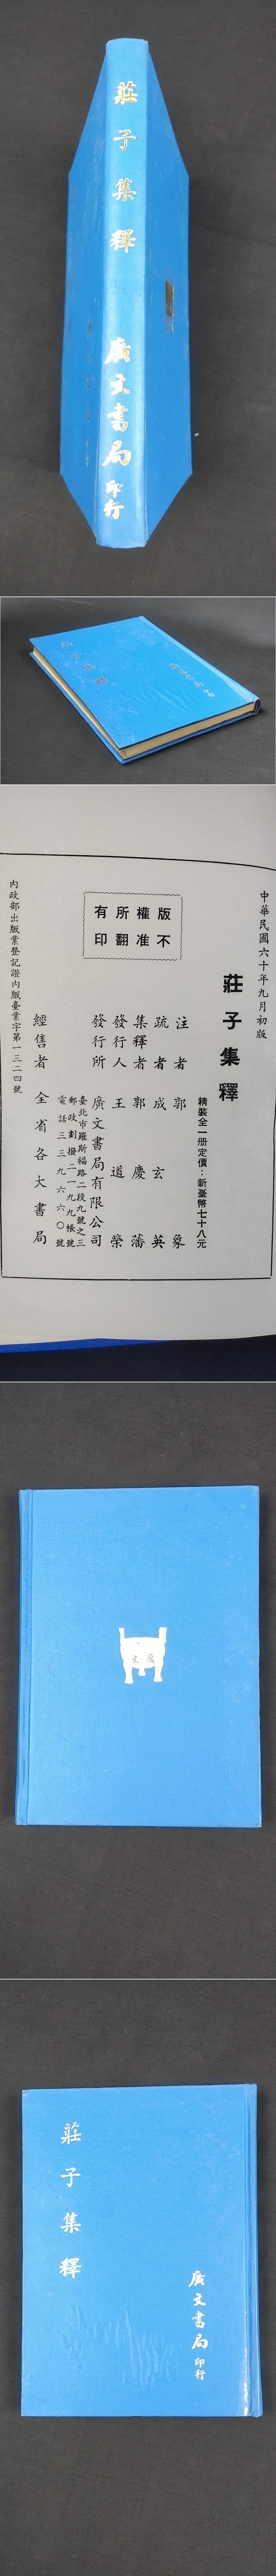 莊子集釋
廣文書局印行
莊子集釋
廣文書局印行
中華民國六十年九月初版
莊子集釋
精裝全一册定價：新臺幣七十八元
注者 郭象
疏者 成玄英
集釋者 郭慶藩
發行人 王道榮
發行所 廣文書局有限公司
臺北市羅斯福路二段九號之三
郵政劃撥二一九九帳號
電話三三九六六〇號
經售者 全省各大書局
內政部出版業登記證內版臺業字第一三二四號
版權所有
不准翻印
廣文
莊子集釋
廣文書局印行